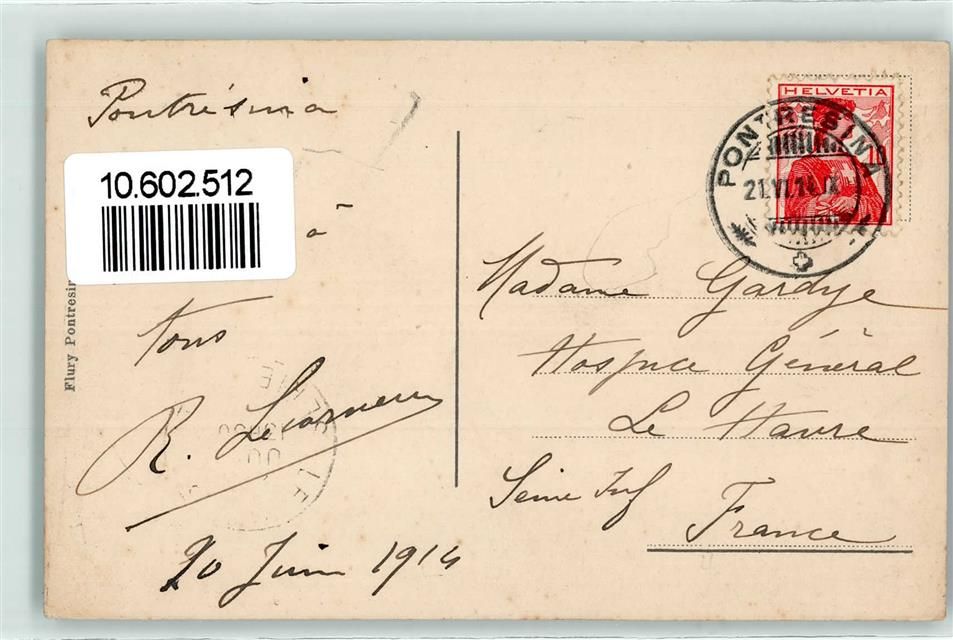 Pontrésina
10.602.512
à
tous
R. Lecarneur
20 Juin 1914
Flury Pontresin
HELVETIA
PONTRESINA
21.VI.14.
Madame Gardye
Hospice Général
Le Havre
Seine Inf
France